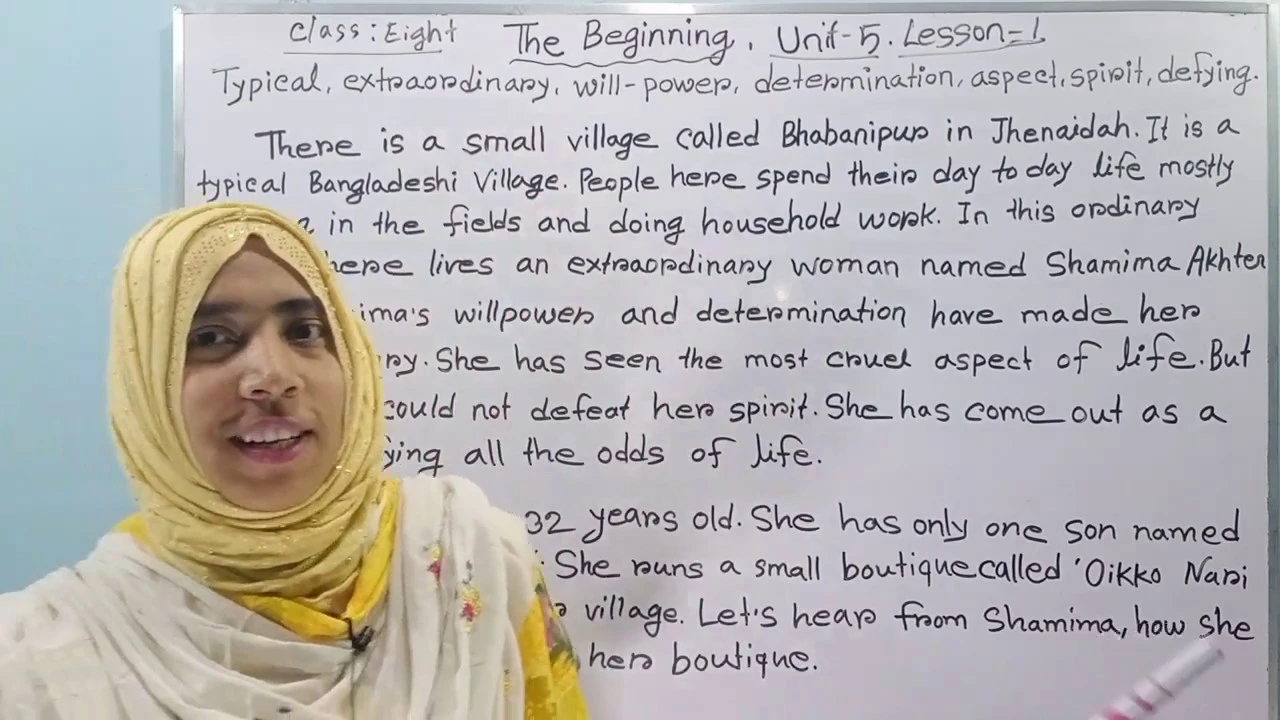 Class: Eight The Beginning. Unit-5. Lesson=1.
Typical, extraordinary, will-power, determination, aspect, spirit, defying.
There is a small village called Bhabanipur in Jhenaidah. It is a
typical Bangladeshi Village. People here spend their day to day life mostly
in the fields and doing household work. In this ordinary
here lives an extraordinary woman named Shamima Akhter
ima's willpower and determination have made her
ry. She has seen the most cruel aspect of life. But
could not defeat her spirit. She has come out as a
ying all the odds of life.
32 years old. She has only one son named
She runs a small boutique called 'Oikko Nari
village. Let's hear from Shamima, how she
her boutique.